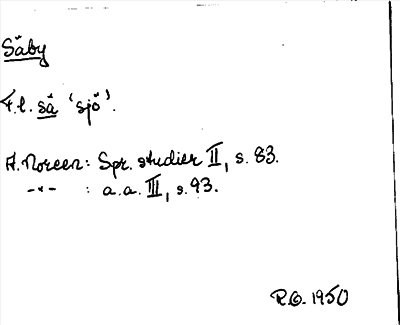 Säby
F.l. sä 'sjö'.
A. Noreen: Spr. studier II, s. 83.
-"- : a.a. III, s. 93.
R.G. 1950